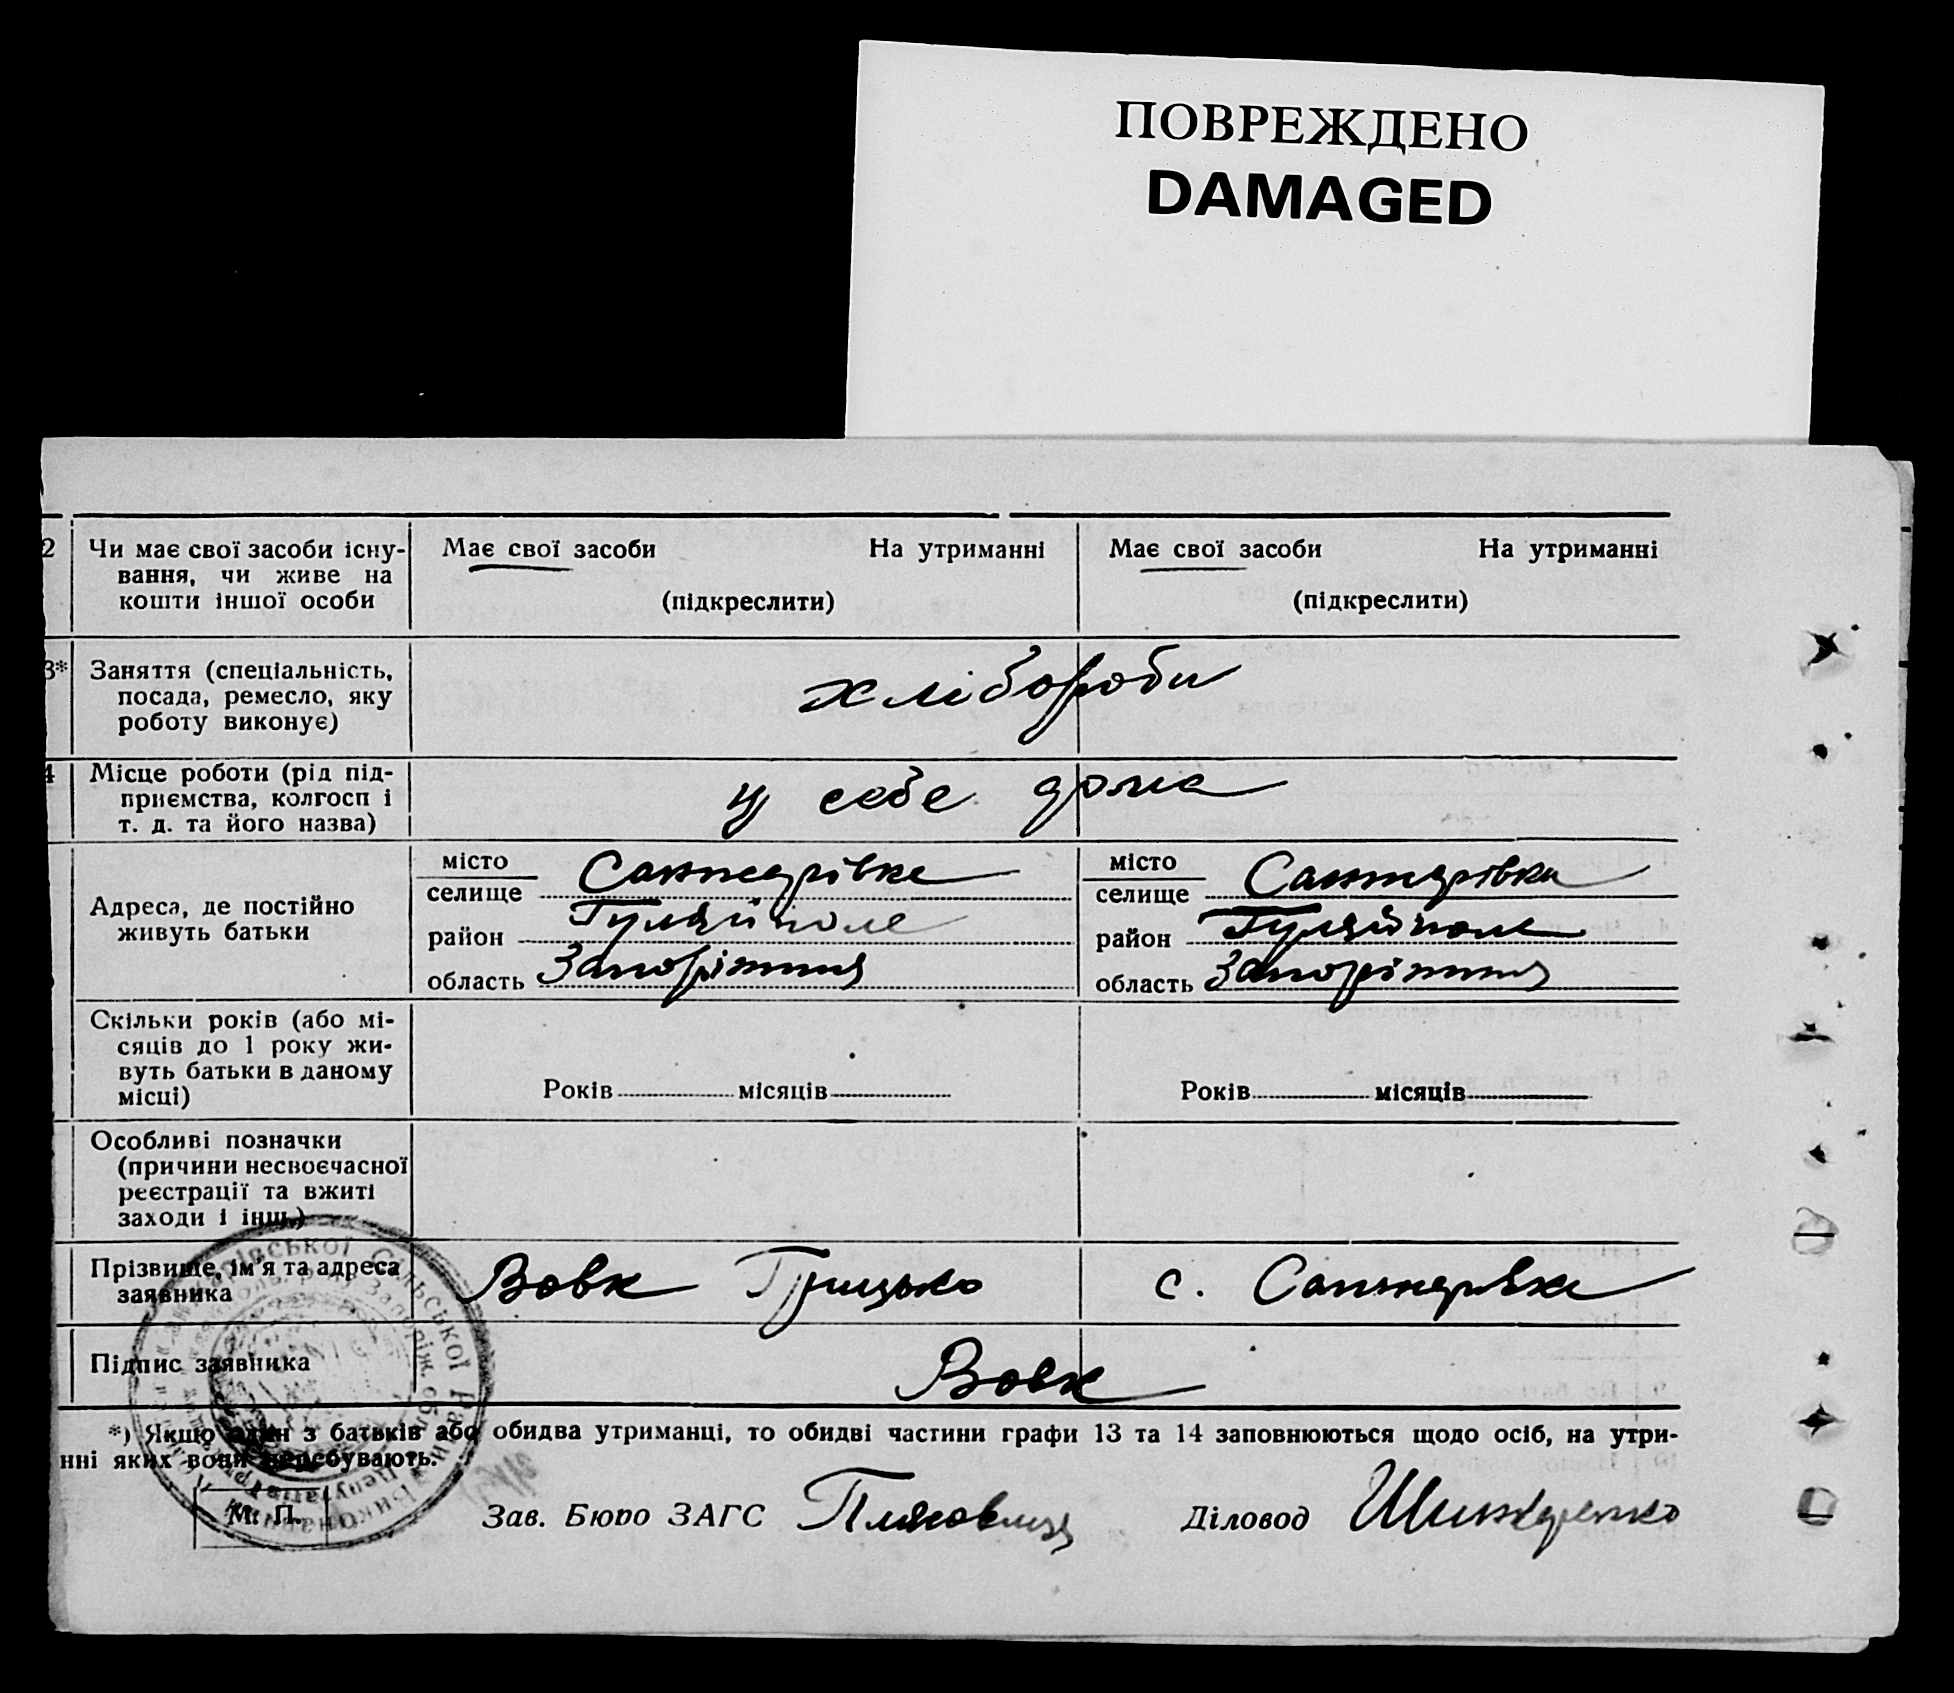 ПОВРЕЖДЕНО
DAMAGED
2 Чи має свої засоби існу- Має свої засоби На утриманні Має свої засоби На утриманні
вання, чи живе на
кошти іншої особи (підкреслити) (підкреслити)
3* Заняття (спеціальність,
посада, ремесло, яку хлібороби
роботу виконує)
4 Місце роботи (рід під-
приємства, колгосп і у себе дома
т. д. та його назва)
місто місто
селище селище
Адреса, де постійно Гуляйполе Гуляйполе
живуть батьки район район
область Запоріжжя область Запоріжжя
Скільки років (або мі-
сяців до 1 року жи-
вуть батьки в даному Років місяців Років місяців
місці)
Особливі позначки
(причини несвоєчасної
реєстрації та вжиті
заходи і інш.)
Прізвище, ім'я та адреса Вовк Грицько с.
заявника
Підпис заявника Вовк
*) Якщо один з батьків або обидва утриманці, то обидві частини графи 13 та 14 заповнюються щодо осіб, на утри-
нні яких вони перебувають.
М. П. Зав. Бюро ЗАГС Діловод